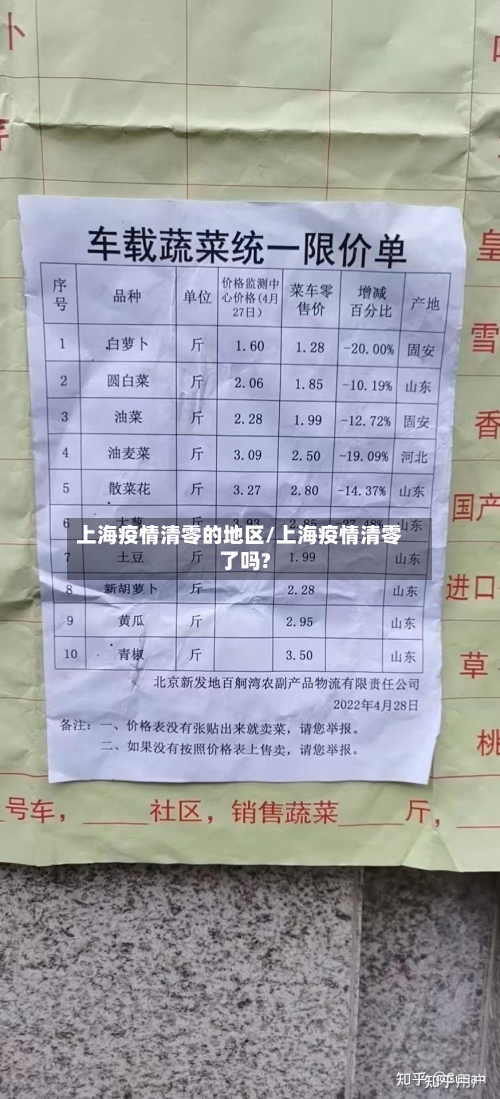 卜
车载蔬菜统一限价单
序号 品种 单位 价格监测中心价格(4月27日) 菜车零售价 增减百分比 产地
1 白萝卜 斤 1.60 1.28 -20.00% 固安
2 圆白菜 斤 2.06 1.85 -10.19% 山东
3 油菜 斤 2.28 1.99 -12.72% 固安
4 油麦菜 斤 3.09 2.50 -19.09% 河北
5 散菜花 斤 3.27 2.80 -14.37% 山东
6 大葱 斤 3.93 2.85 山东
上海疫情清零的地区/上海疫情清零
了吗?
7 土豆 斤 1.99 山东
8 新胡萝卜 斤 2.28 山东
9 黄瓜 斤 2.95 山东
10 青椒 斤 3.50 山东
北京新发地百舸湾农副产品物流有限责任公司
2022年4月28日
备注:一、价格表没有张贴出来就卖菜,请您举报。
二、如果没有按照价格表上售卖,请您举报。
皇
雪
香
国产
进口
草
桃
号车,____社区,销售蔬菜____斤,
知乎用户